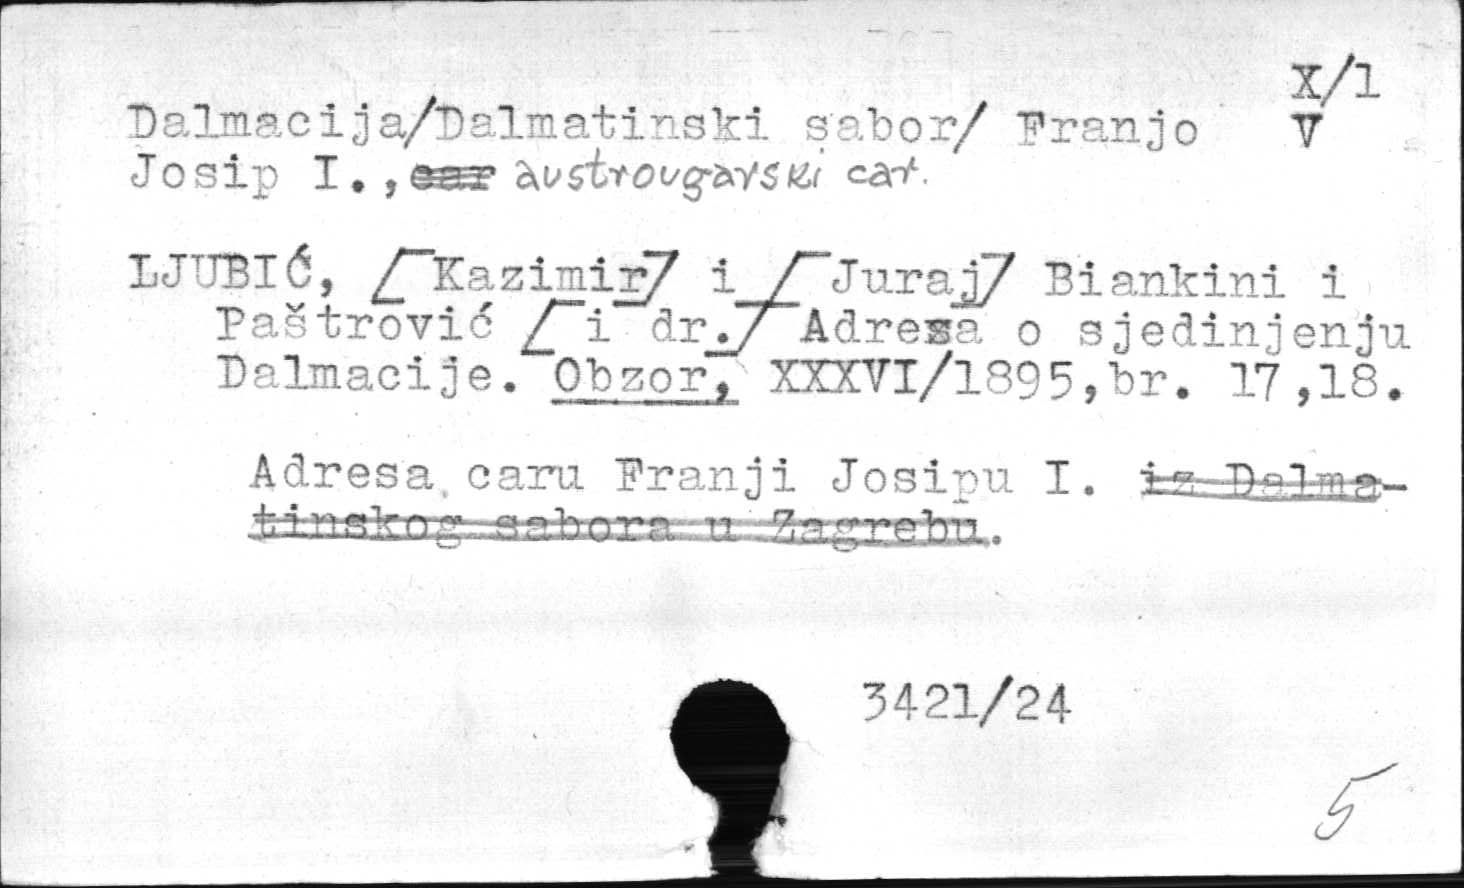 X/1
Dalmacija/Dalmatinski sabor/ Franjo V
Josip I., car austrougarski car.
LJUBIĆ, [Kazimir] i [Juraj] Biankini i
Paštrović [i dr.] Adresa o sjedinjenju
Dalmacije. Obzor, XXXVI/1895,br. 17,18.
Adresa caru Franji Josipu I. iz Dalma-
tinskog sabora u Zagrebu.
3421/24
5